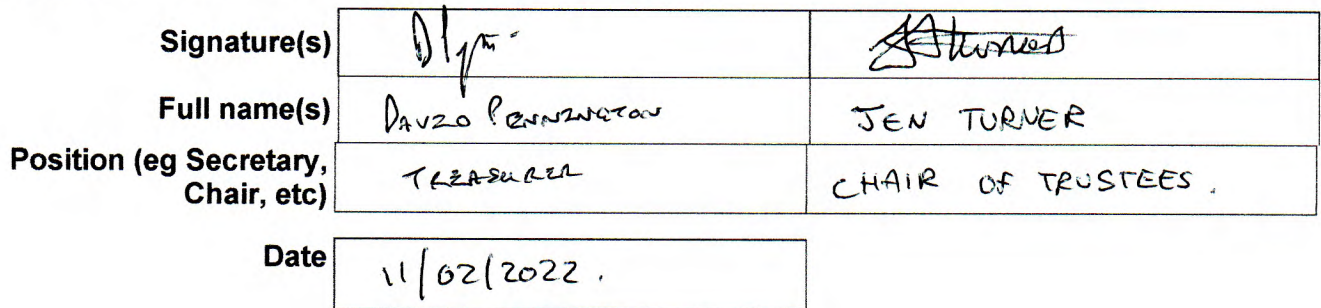 Signature(s)
Full name(s) DAVID PENNINGTON JEN TURNER
Position (eg Secretary, Chair, etc) TREASURER CHAIR OF TRUSTEES.
Date 11/02/2022.